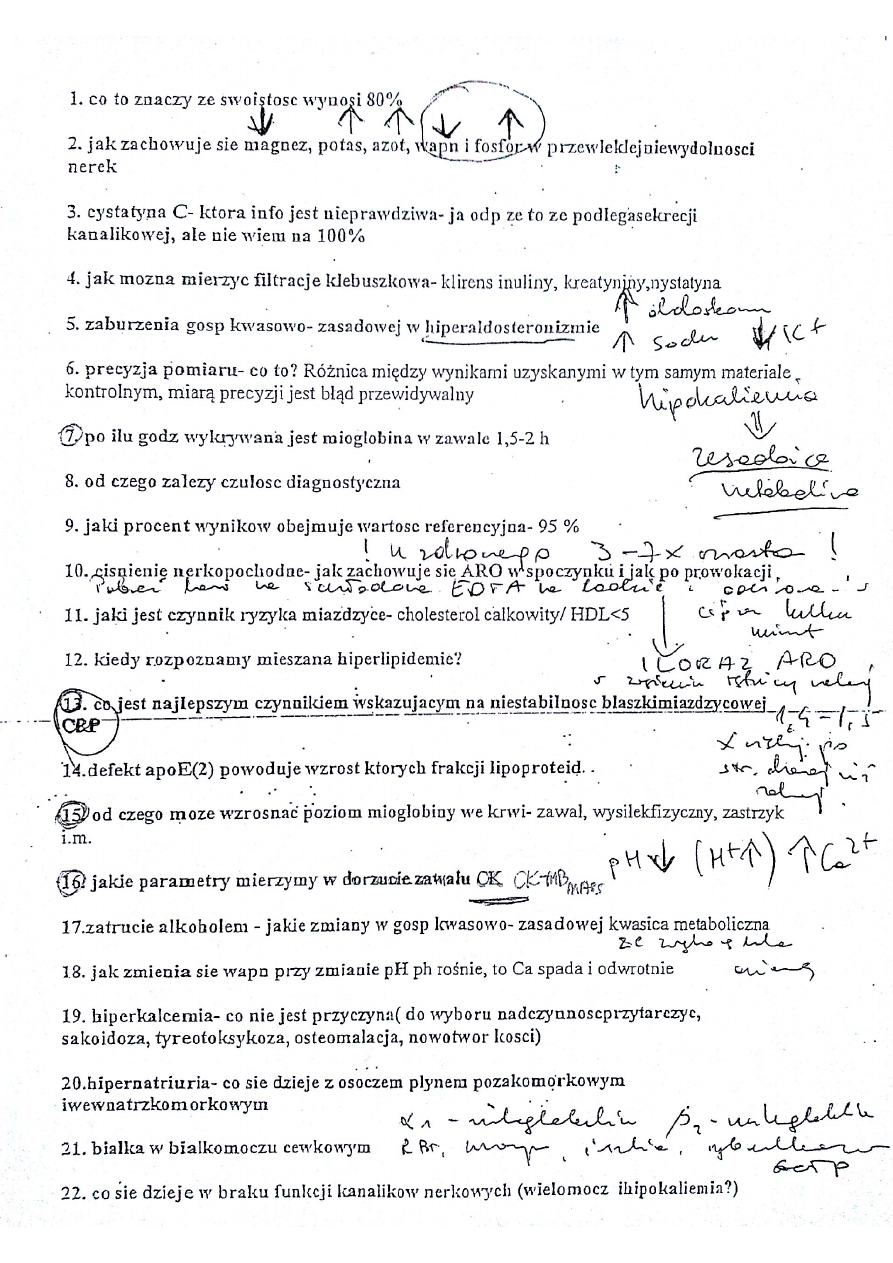 1. co to znaczy ze swoistosc wynosi 80%
↓ ↑ ↑ ↓ ↑
2. jak zachowuje sie magnez, potas, azot, wapn i fosfor w przewleklejniewydolnosci
nerek
3. cystatyna C- ktora info jest nieprawdziwa- ja odp ze to ze podlegasekrecji
kanalikowej, ale nie wiem na 100%
4. jak mozna mierzyc filtracje klebuszkowa- klirens inuliny, kreatyniny,nystatyna
↑ aldosteron
5. zaburzenia gosp kwasowo- zasadowej w hiperaldosteronizmie ↑ sodu ↓ K+
6. precyzja pomiaru- co to? Różnica między wynikami uzyskanymi w tym samym materiale
kontrolnym, miarą precyzji jest błąd przewidywalny
hipokaliemia
⇓
7. po ilu godz wykrywana jest mioglobina w zawale 1,5-2 h
zasadowica
8. od czego zalezy czulosc diagnostyczna
metaboliczna
9. jaki procent wynikow obejmuje wartosc referencyjna- 95 %
! u zdrowego 3-7x wzrasta !
10. cisnienie nerkopochodne- jak zachowuje sie ARO w spoczynku i jak po prowokacji
EDTA na
11. jaki jest czynnik ryzyka miazdzyce- cholesterol calkowity/ HDL<5
kilka
minut
12. kiedy rozpoznamy mieszana hiperlipidemie?
ILORAZ ARO
13. co jest najlepszym czynnikiem wskazujacym na niestabilnosc blaszkimiazdzycowej
1,4 - 1,5
CRP
14.defekt apoE(2) powoduje wzrost ktorych frakcji lipoproteid. .
15. od czego moze wzrosnać poziom mioglobiny we krwi- zawal, wysilekfizyczny, zastrzyk
i.m.
pH↓ (H+↑) ↑Ca2+
16. jakie parametry mierzymy w dorzucie zawału CK CK-MB mass
17.zatrucie alkoholem - jakie zmiany w gosp kwasowo- zasadowej kwasica metaboliczna
18. jak zmienia sie wapn przy zmianie pH ph rośnie, to Ca spada i odwrotnie
19. hiperkalcemia- co nie jest przyczyna( do wyboru nadczynnoscprzytarczyc,
sakoidoza, tyreotoksykoza, osteomalacja, nowotwor kosci)
20.hipernatriuria- co sie dzieje z osoczem plynem pozakomórkowym
iwewnatrzkomorkowym
α1 - mikroglobulin β2 - mikroglobulin
21. bialka w bialkomoczu cewkowym RBP,
22. co sie dzieje w braku funkcji kanalikow nerkowych (wielomocz ihipokaliemia?)